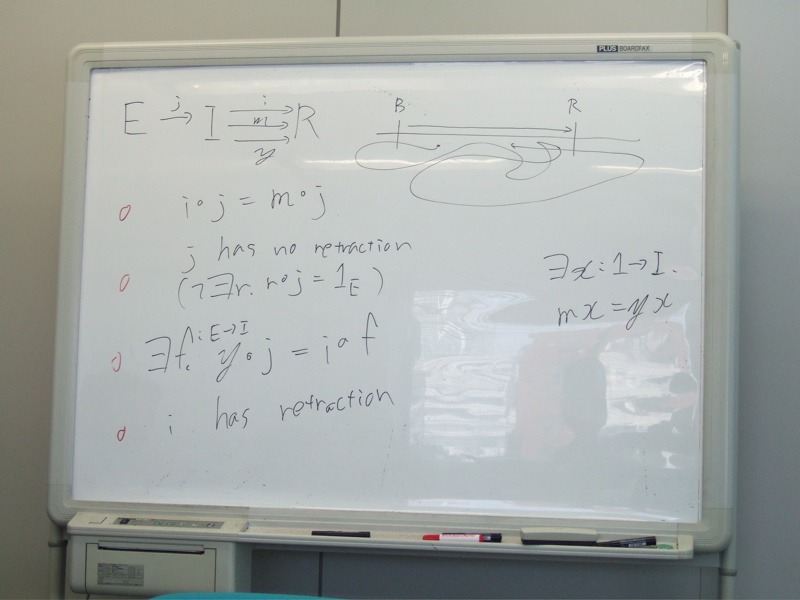 PLUS BOARDFAX
E →j I →i →m →y R
B R
i∘j = m∘j
j has no retraction
(¬∃r. r∘j = 1_E)
∃f: E→I. y∘j = i∘f
i has retraction
∃x: 1→I.
mx = yx